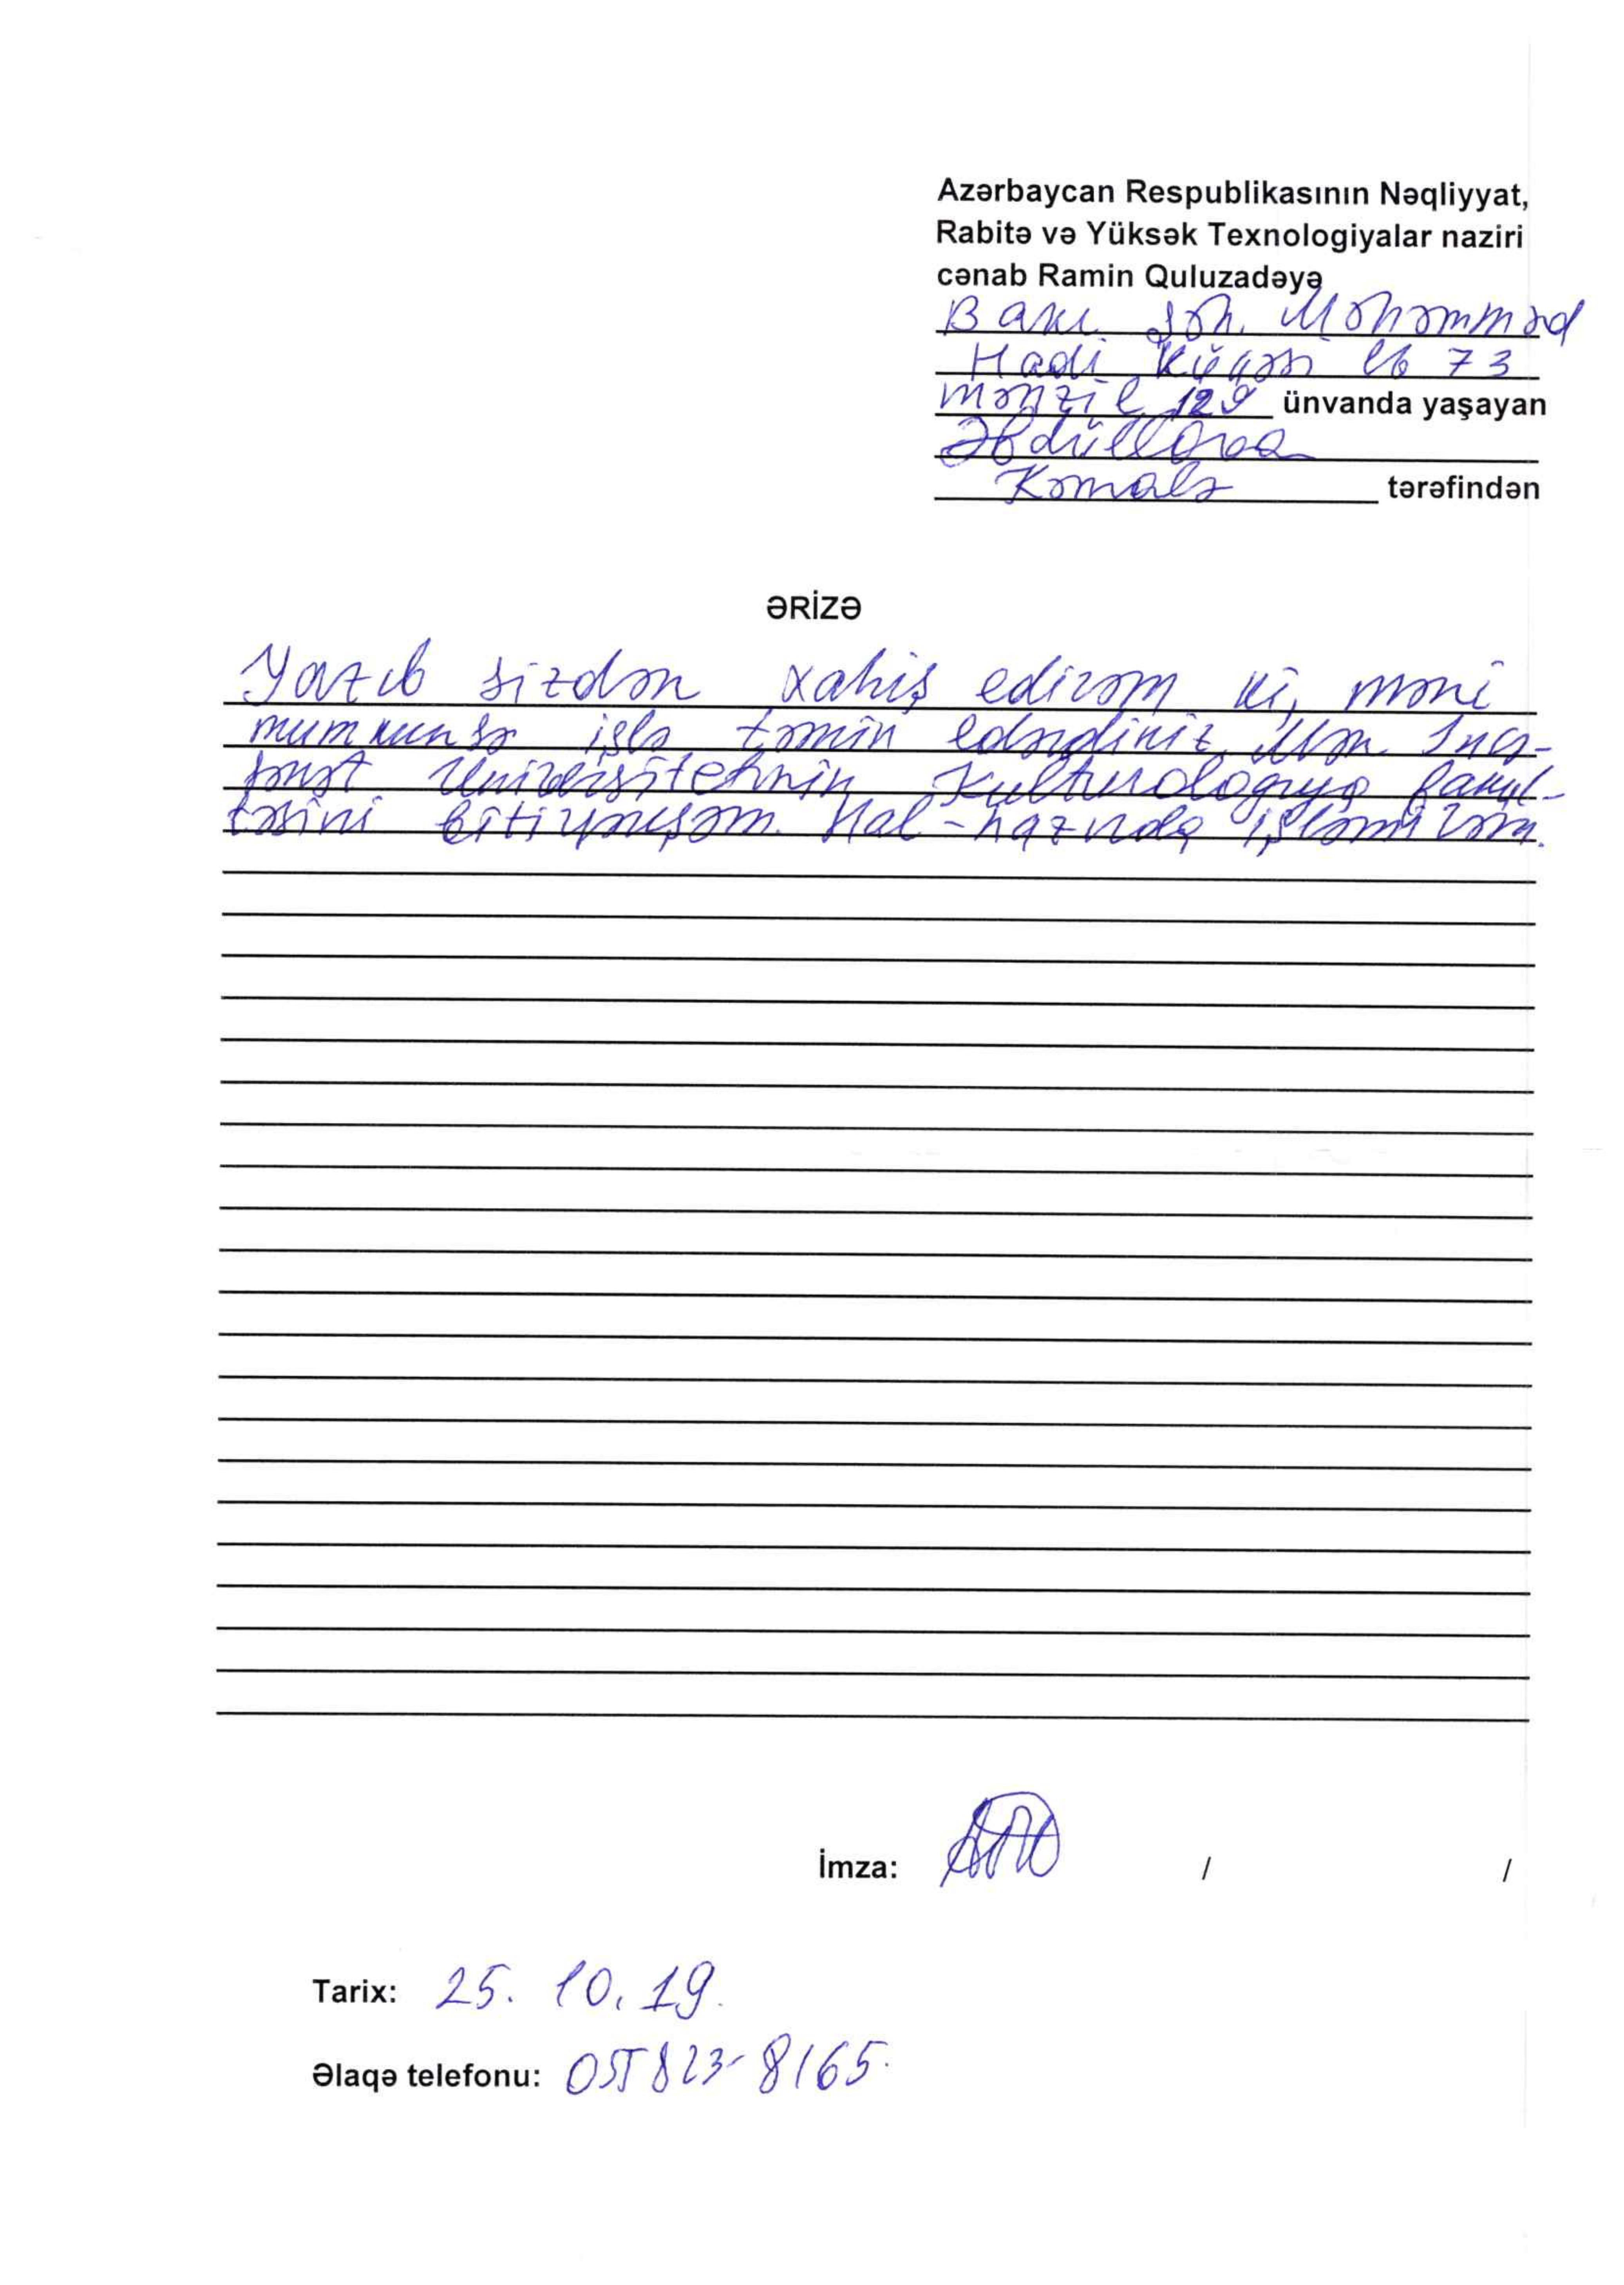 Azərbaycan Respublikasının Nəqliyyat,
Rabitə və Yüksək Texnologiyalar naziri
cənab Ramin Quluzadəyə
Bakı şəh. Məhəmməd
Hadi küçəsi 73
mənzil 129 ünvanda yaşayan
Əbdüllova
Kəmalə tərəfindən
ƏRİZƏ
Yazıb sizdən xahiş edirəm ki, məni
mumkunsə işlə təmin edəsiniz. Mən İncə-
sənət Universitetinin Kulturologiya fakul-
təsini bitirmişəm. Hal-hazırda işləmirəm.
İmza: / /
Tarix: 25. 10. 19.
Əlaqə telefonu: 055 823-8165.